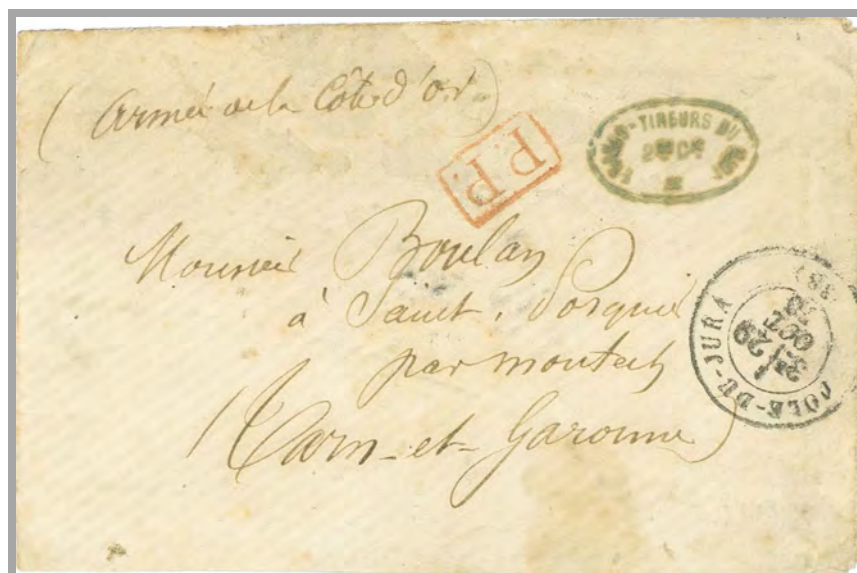 (Armée de la Côte d'or)
P.P.
-TIREURS DU
Monsieur Boulan
à Saint. Porquier
par montech
(Tarn-et-Garonne)
DOLE-DU-JURA
29
OCT.
70